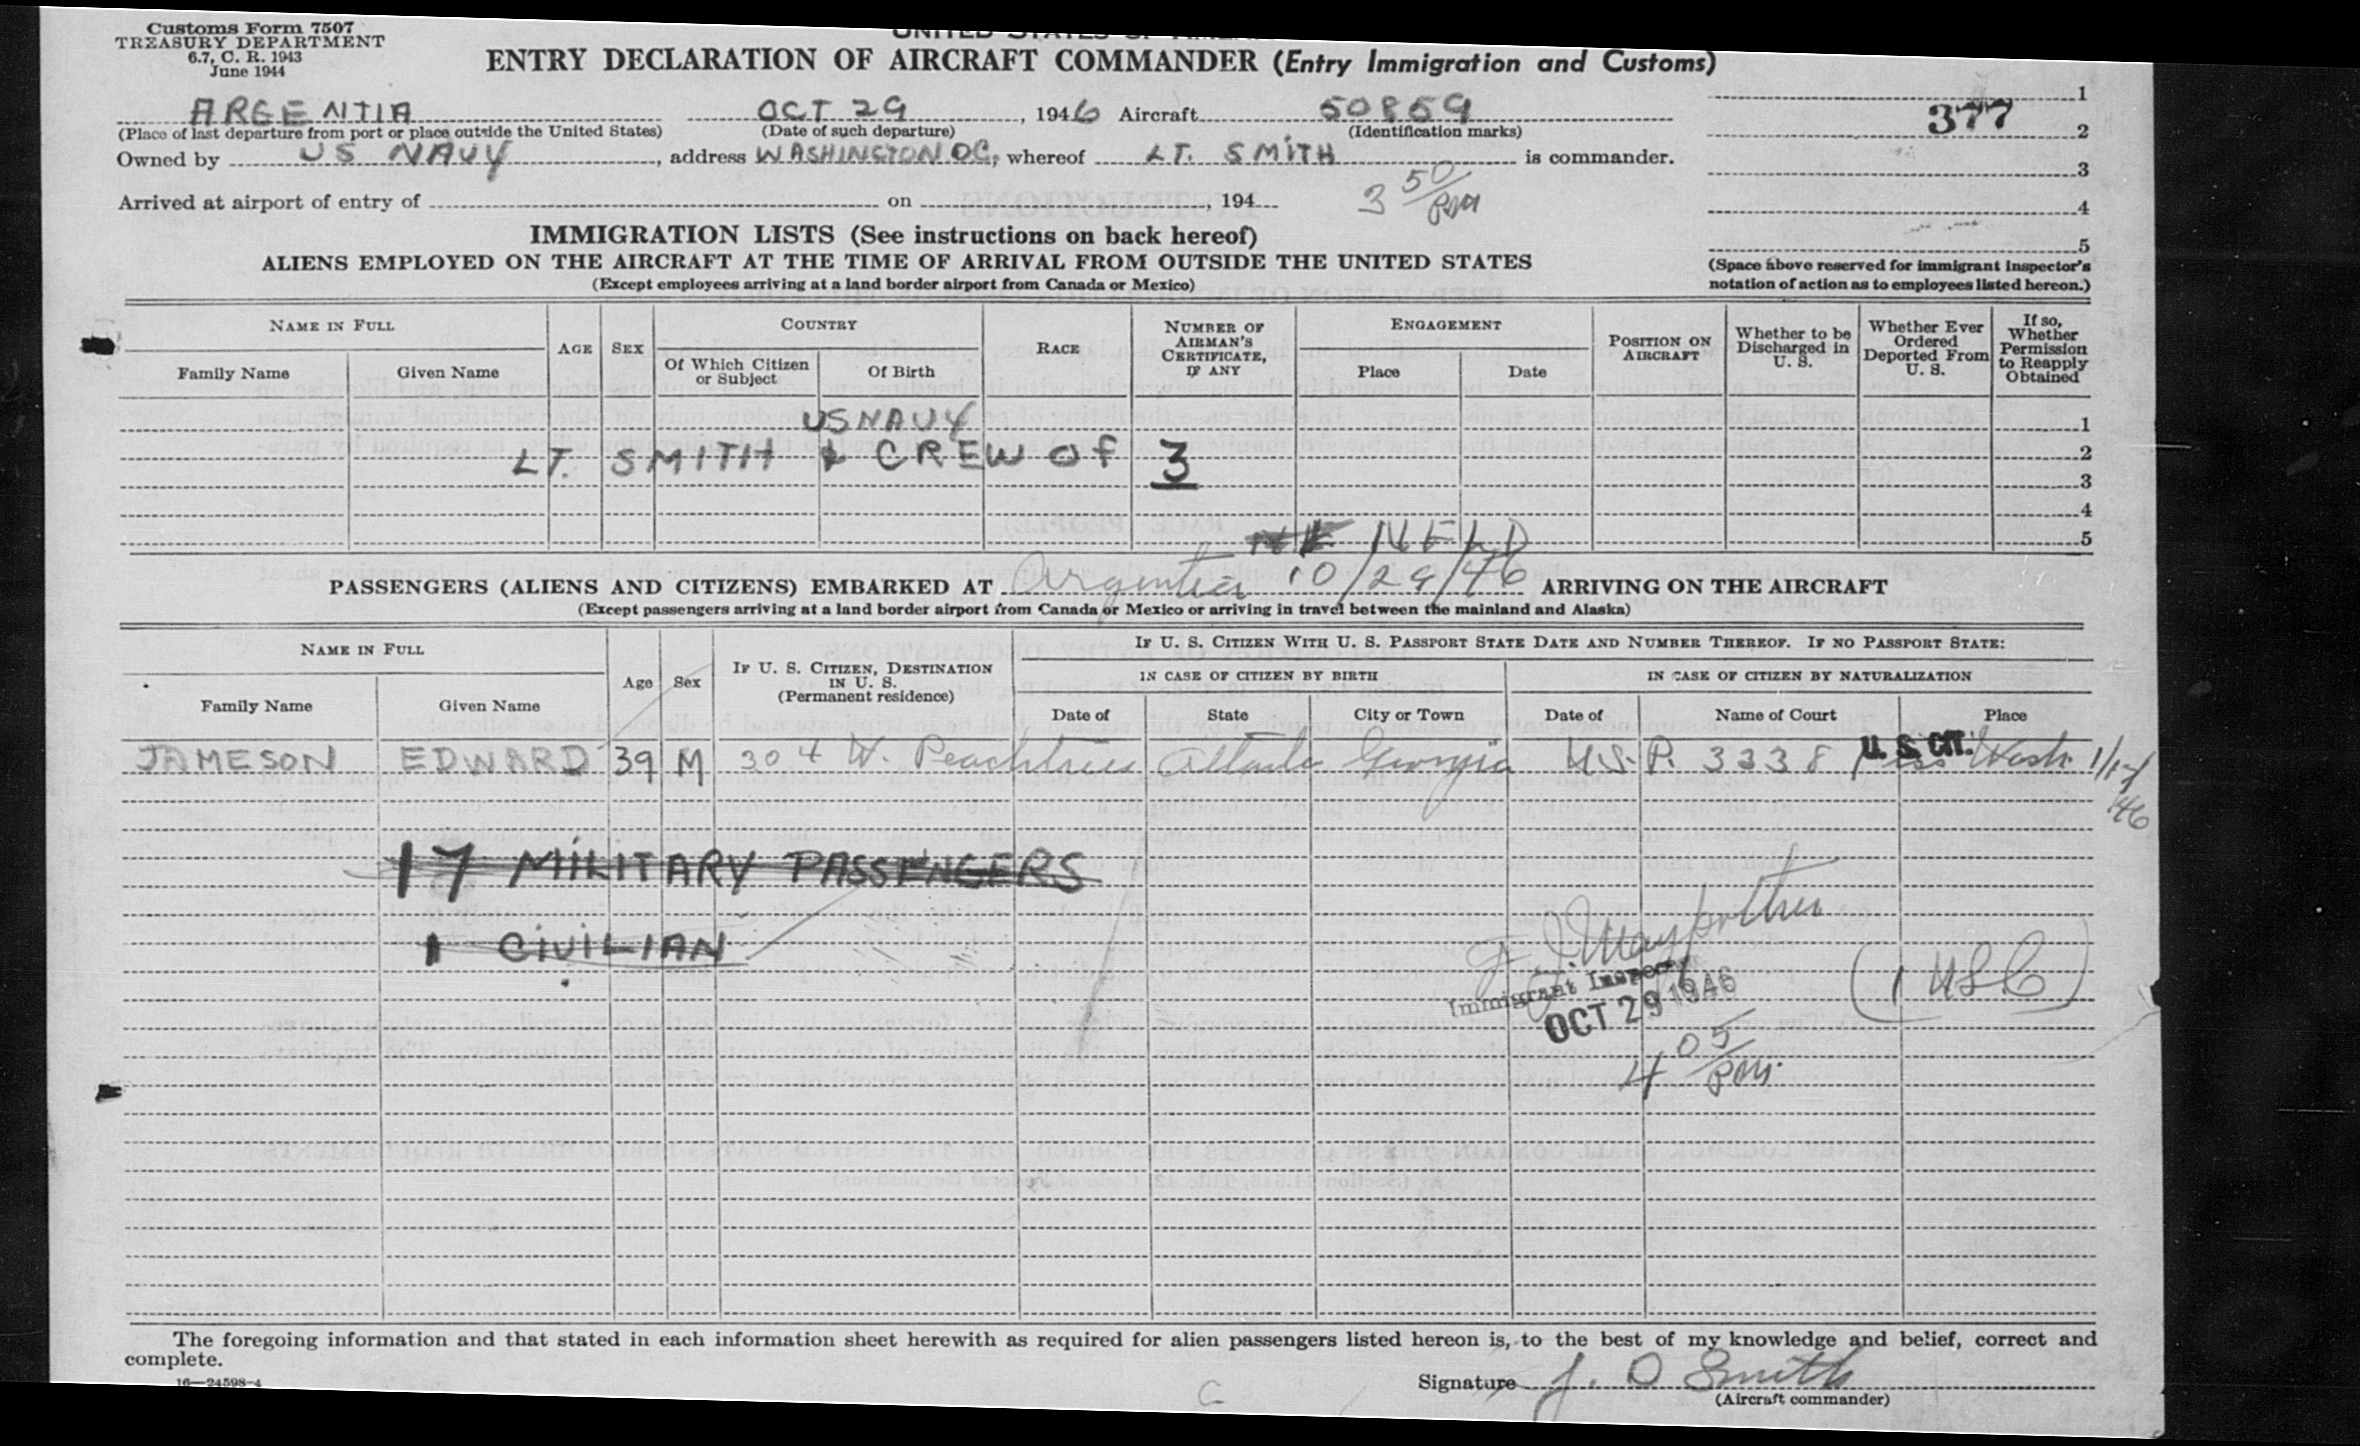 Customs Form 7507
TREASURY DEPARTMENT
6.7, C. R. 1943
June 1944
UNITED STATES OF AMERICA
ENTRY DECLARATION OF AIRCRAFT COMMANDER (Entry Immigration and Customs)
ARGENTIA OCT 29, 1946 Aircraft 50859
(Place of last departure from port or place outside the United States) (Date of such departure) (Identification marks)
Owned by US NAVY, address WASHINGTON DC, whereof LT. SMITH is commander.
Arrived at airport of entry of on , 194
3 50/PM
1
377
2
3
4
5
(Space above reserved for immigrant inspector's
notation of action as to employees listed hereon.)
IMMIGRATION LISTS (See instructions on back hereof)
ALIENS EMPLOYED ON THE AIRCRAFT AT THE TIME OF ARRIVAL FROM OUTSIDE THE UNITED STATES
(Except employees arriving at a land border airport from Canada or Mexico)
NAME IN FULL
Family Name Given Name
AGE
SEX
COUNTRY
Of Which Citizen or Subject
Of Birth
RACE
NUMBER OF AIRMAN'S CERTIFICATE, IF ANY
ENGAGEMENT
Place Date
POSITION ON AIRCRAFT
Whether to be Discharged in U. S.
Whether Ever Ordered Deported From U. S.
If so, Whether Permission to Reapply Obtained
US NAVY 1
LT. SMITH & CREW OF 3 2
3
4
5
NFLD
PASSENGERS (ALIENS AND CITIZENS) EMBARKED AT Argentia 10/29/46 ARRIVING ON THE AIRCRAFT
(Except passengers arriving at a land border airport from Canada or Mexico or arriving in travel between the mainland and Alaska)
NAME IN FULL
Family Name Given Name
Age
Sex
IF U. S. CITIZEN, DESTINATION IN U. S.
(Permanent residence)
IF U. S. CITIZEN WITH U. S. PASSPORT STATE DATE AND NUMBER THEREOF. IF NO PASSPORT STATE:
IN CASE OF CITIZEN BY BIRTH
IN CASE OF CITIZEN BY NATURALIZATION
Date of State City or Town Date of Name of Court Place
JAMESON EDWARD 39 M 304 W. Peachtree Atlanta Georgia U.S.P. 3338 U. S. CIT. Wash. 1/17/46
17 MILITARY PASSENGERS
1 CIVILIAN
Immigrant Inspector
OCT 29 1946
(1 USC)
4 05/PM.
The foregoing information and that stated in each information sheet herewith as required for alien passengers listed hereon is, to the best of my knowledge and belief, correct and
complete.
16—24598-4
Signature J. D Smith
(Aircraft commander)